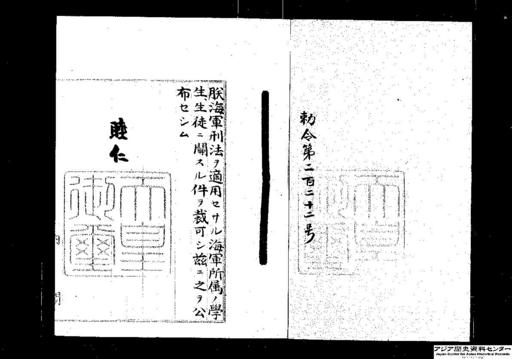 勅令第二百二十二号
朕海軍刑法ヲ適用セサル海軍所属ノ學
生、生徒ニ關スル件ヲ裁可シ茲ニ之ヲ公
布セシム
睦仁
天皇
御璽
内閣
アジア歴史資料センター
Japan Center for Asian Historical Records